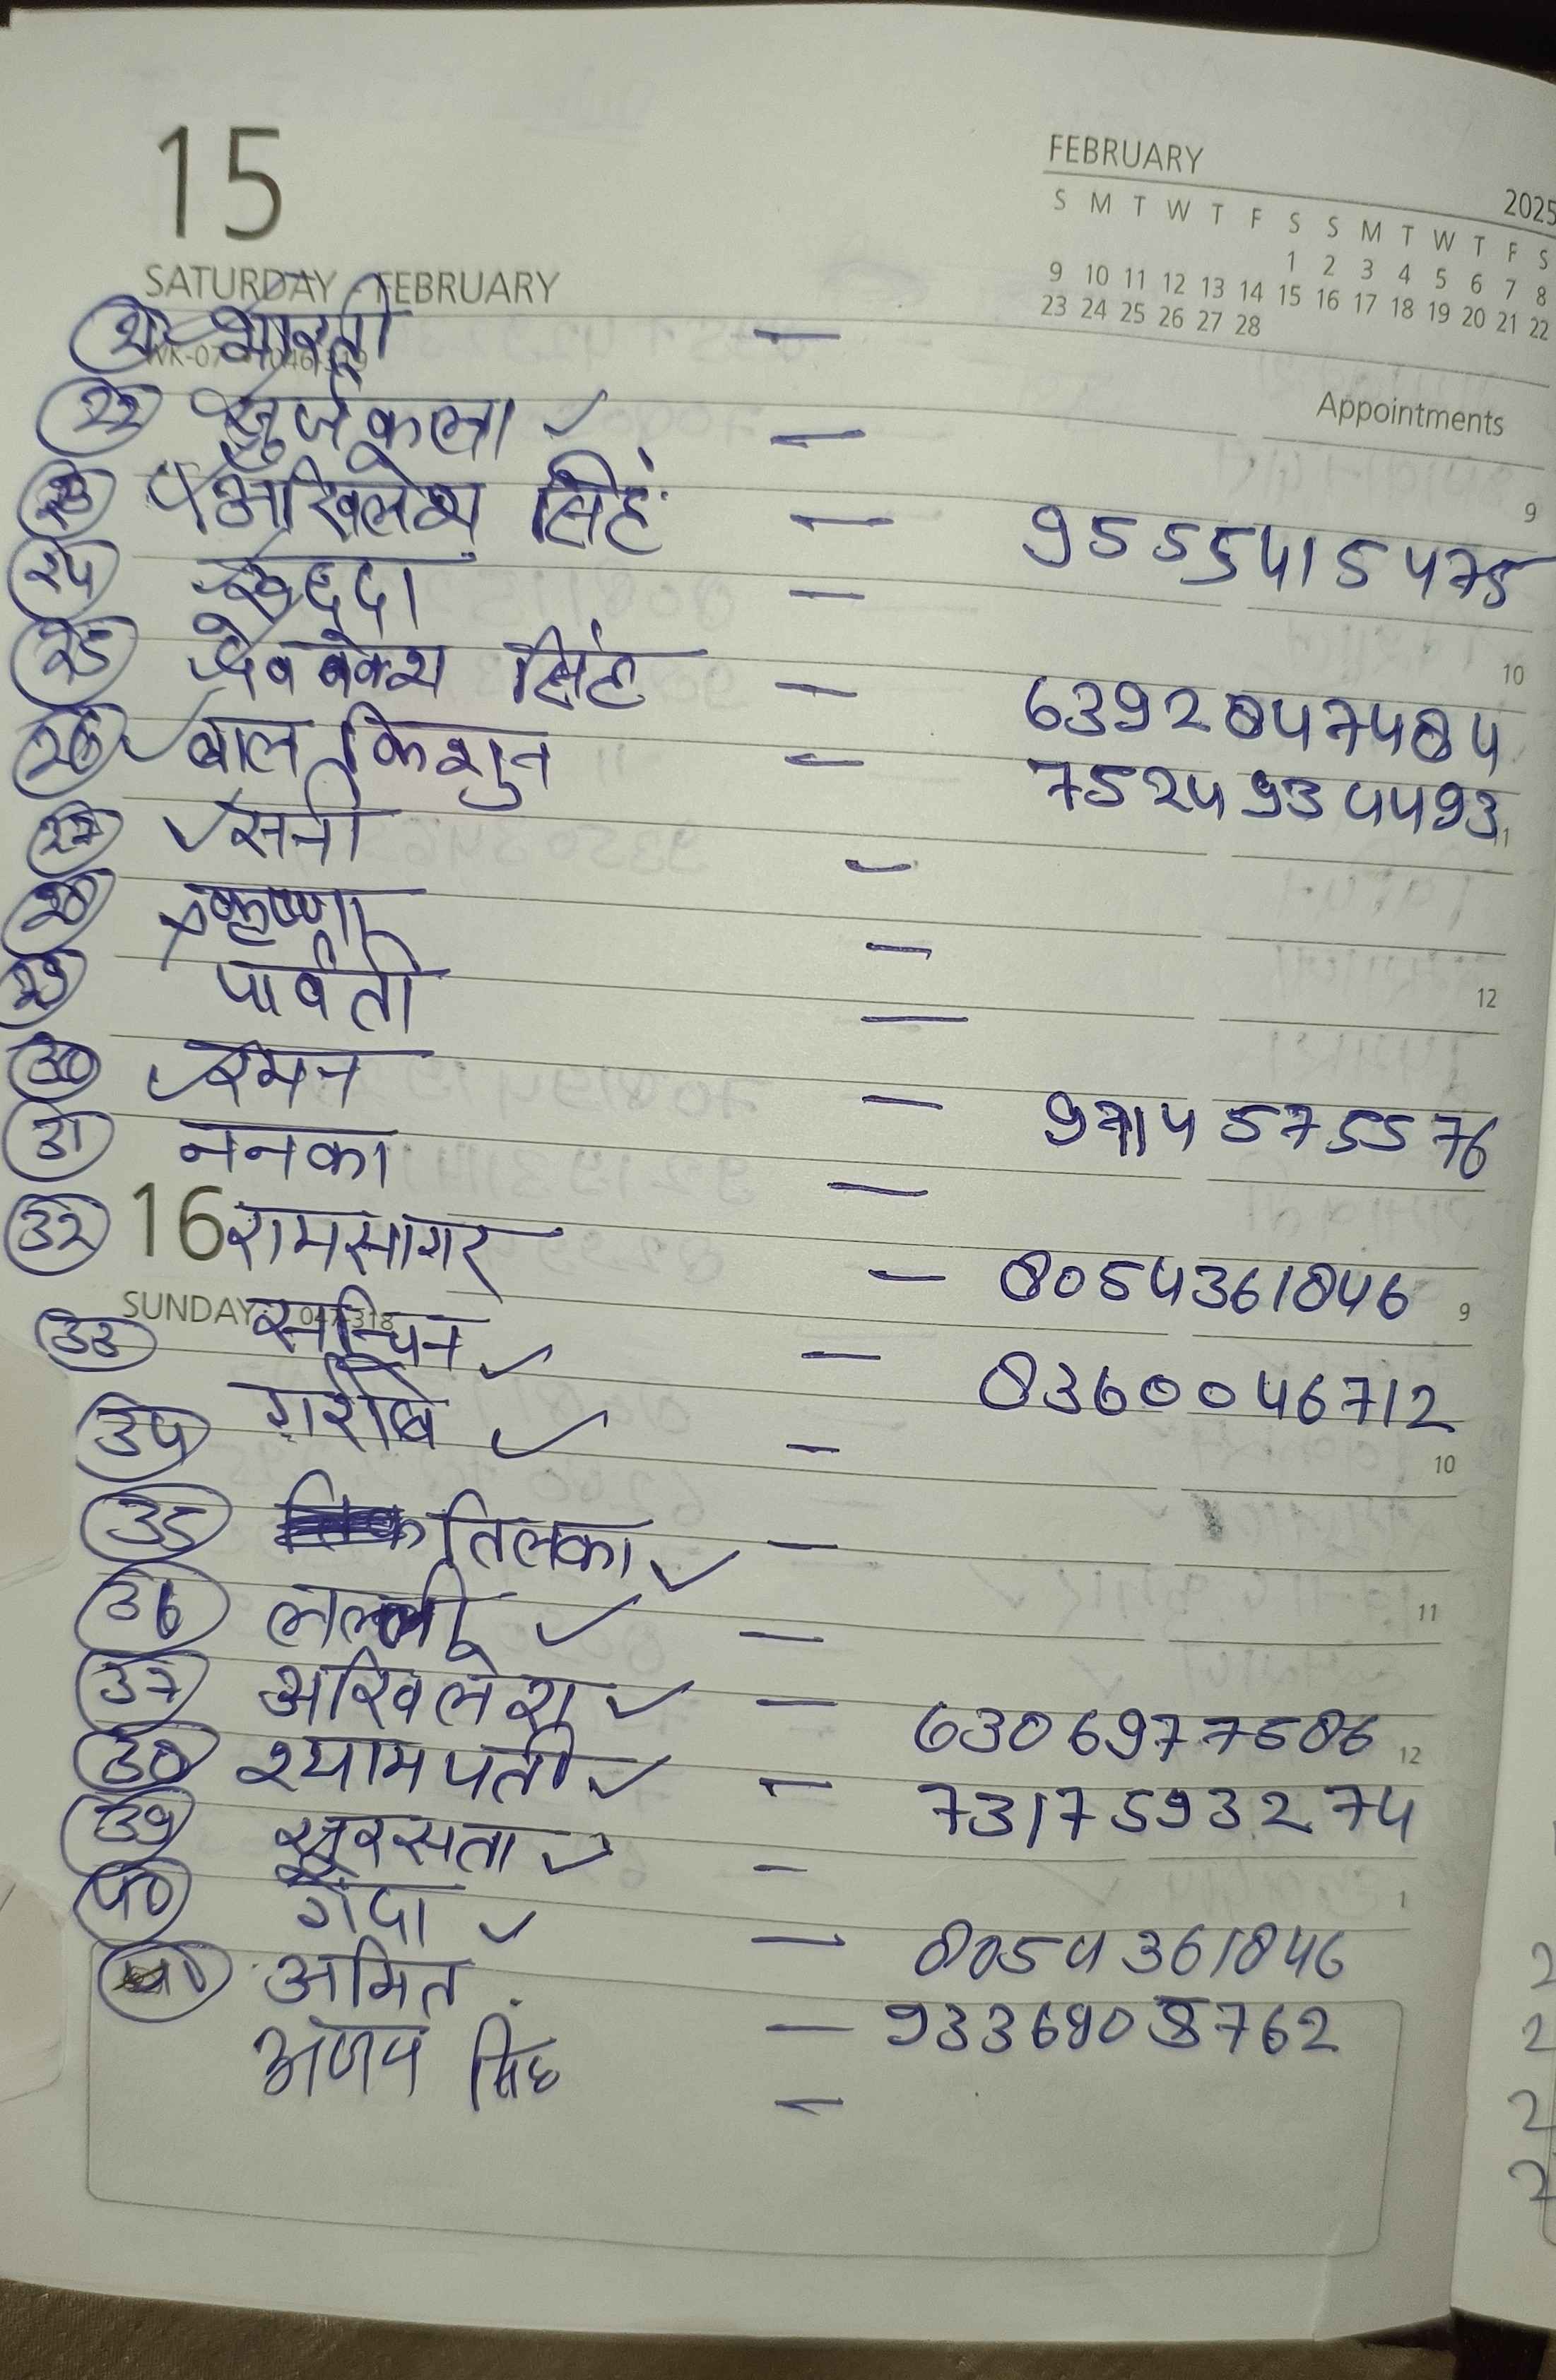 15
FEBRUARY 2025
S M T W T F S S M T W T F S
1 2 3 4 5 6 7 8
9 10 11 12 13 14 15 16 17 18 19 20 21 22
23 24 25 26 27 28
SATURDAY - FEBRUARY
२१ भारती —
Appointments
२२ सुर्जकला ✓ —
२३ अखिलेश सिहं — 9555415475
9
२४ —
२५ देव बक्श सिंह — 6392847484
10
२६ ✓ बाल किशुन — 7524934493
11
२७ ✓ सनी —
२८ कृष्णा —
२९ पार्वती —
12
३० ✓ रमन — 9714575576
३१ ननका —
३२ 16 रामसागर — 8054361846
9
SUNDAY
३३ सचिन ✓ — 8360046712
३४ गरीब ✓ —
10
३५ तिलका ✓ —
३६ लल्ली ✓ —
11
३७ अखिलेश ✓ — 6306977586
12
३८ श्यामपती ✓ — 7317593274
३९ सूरसता ✓ —
1
४० गेंदा ✓ — 8054361846
४१ अमित — 9336808762
अजय सिंह —